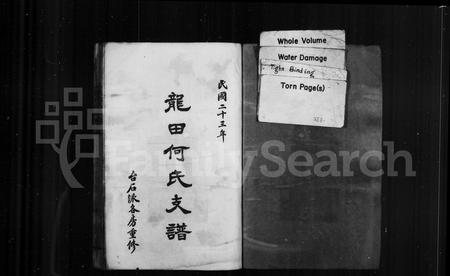 民國二十三年
龍田何氏支譜
台石派各房重修
Whole Volume
Water Damage
Tight Binding
Torn Page(s)
FamilySearch